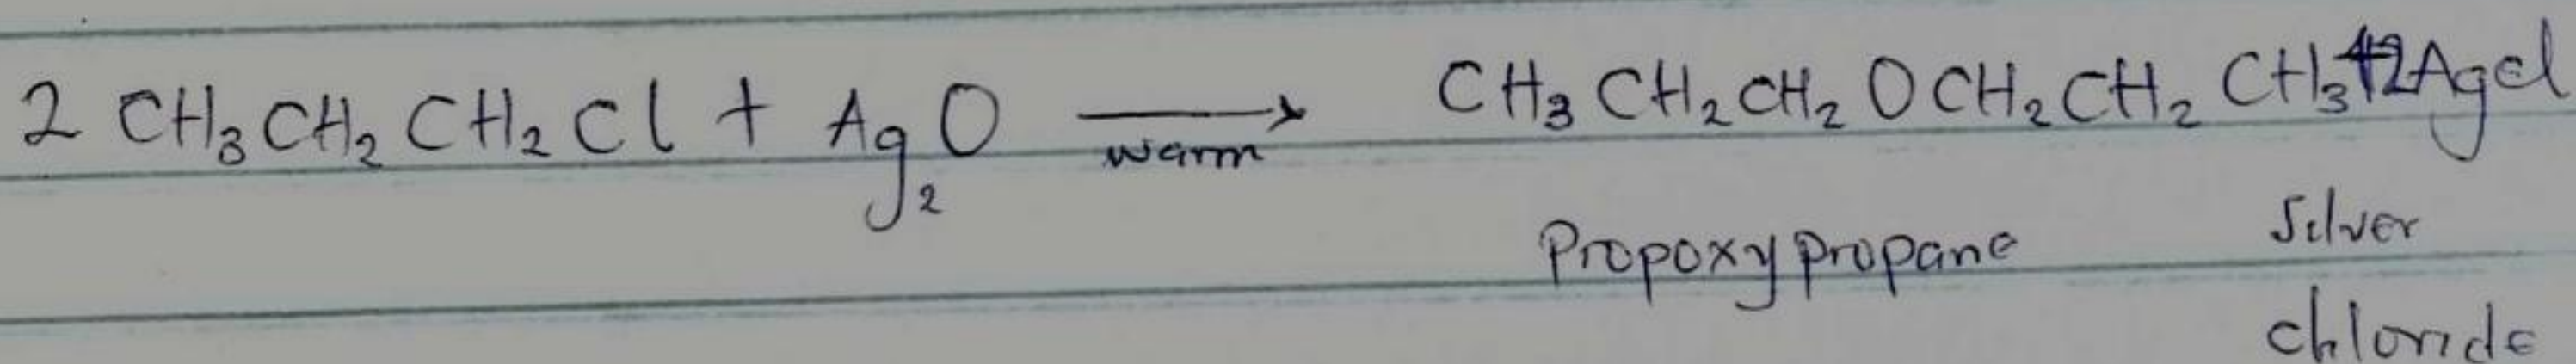 2 CH₃CH₂CH₂Cl + Ag₂O ⟶ CH₃CH₂CH₂OCH₂CH₂CH₃+2Agcl
warm
Propoxypropane Silver
chloride